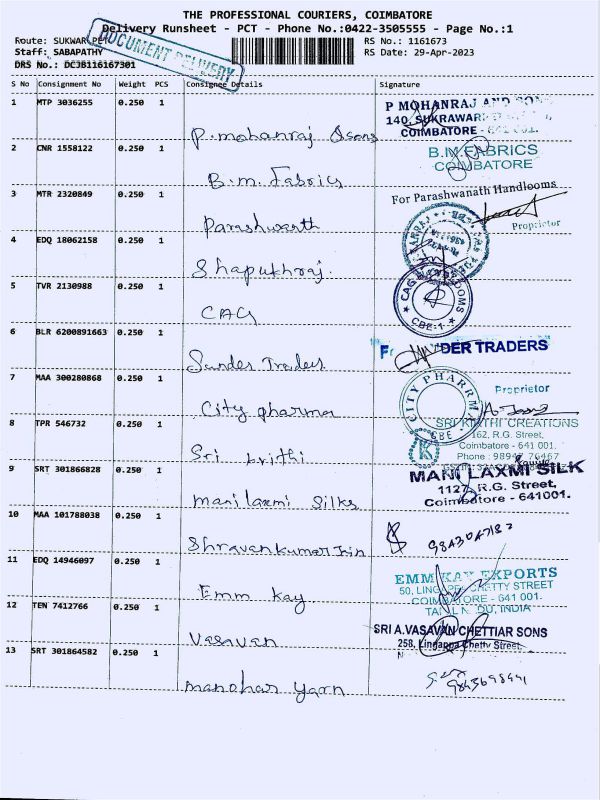 THE PROFESSIONAL COURIERS, COIMBATORE
Delivery Runsheet - PCT - Phone No.:0422-3505555 - Page No.:1
Route: SUKWAR PET
RS No.: 1161673
Staff: SABAPATHY
RS Date: 29-Apr-2023
DRS No.: DCJB116167301
DOCUMENT DELIVERY
S No Consignment No Weight PCS Consignee Details Signature
1 MTP 3036255 0.250 1
P. mohanraj & sons
P MOHANRAJ AND SONS
140, SUKRAWAR
COIMBATORE
2 CNR 1558122 0.250 1
B.m. Fabrics
B.M. FABRICS
COIMBATORE
3 MTR 2320849 0.250 1
Parashwanth
For Parashwanath Handlooms
Proprietor
4 EDQ 18062158 0.250 1
Shapukhraj.
5 TVR 2130988 0.250 1
CAG
CBE-1
6 BLR 6200891663 0.250 1
Sunder Traders
DER TRADERS
Proprietor
7 MAA 300280868 0.250 1
City pharma
CITY PHARMA
CBE
8 TPR 546732 0.250 1
Sri krithi
SRI KRITHI CREATIONS
162, R.G. Street,
Coimbatore - 641 001.
9 SRT 301866828 0.250 1
mani laxmi silks
MANI LAXMI SILK
1127, R.G. Street,
Coimbatore - 641001.
10 MAA 101788038 0.250 1
Shravan kumar Jain
11 EDQ 14946097 0.250 1
Emm kay
EMM KAY EXPORTS
50, LINGAPPA CHETTY STREET
COIMBATORE - 641 001.
TAMIL NADU, INDIA
12 TEN 7412766 0.250 1
Vasavan
SRI A.VASAVAN CHETTIAR SONS
258, Lingappa Chetty Street,
13 SRT 301864582 0.250 1
manohar yarn